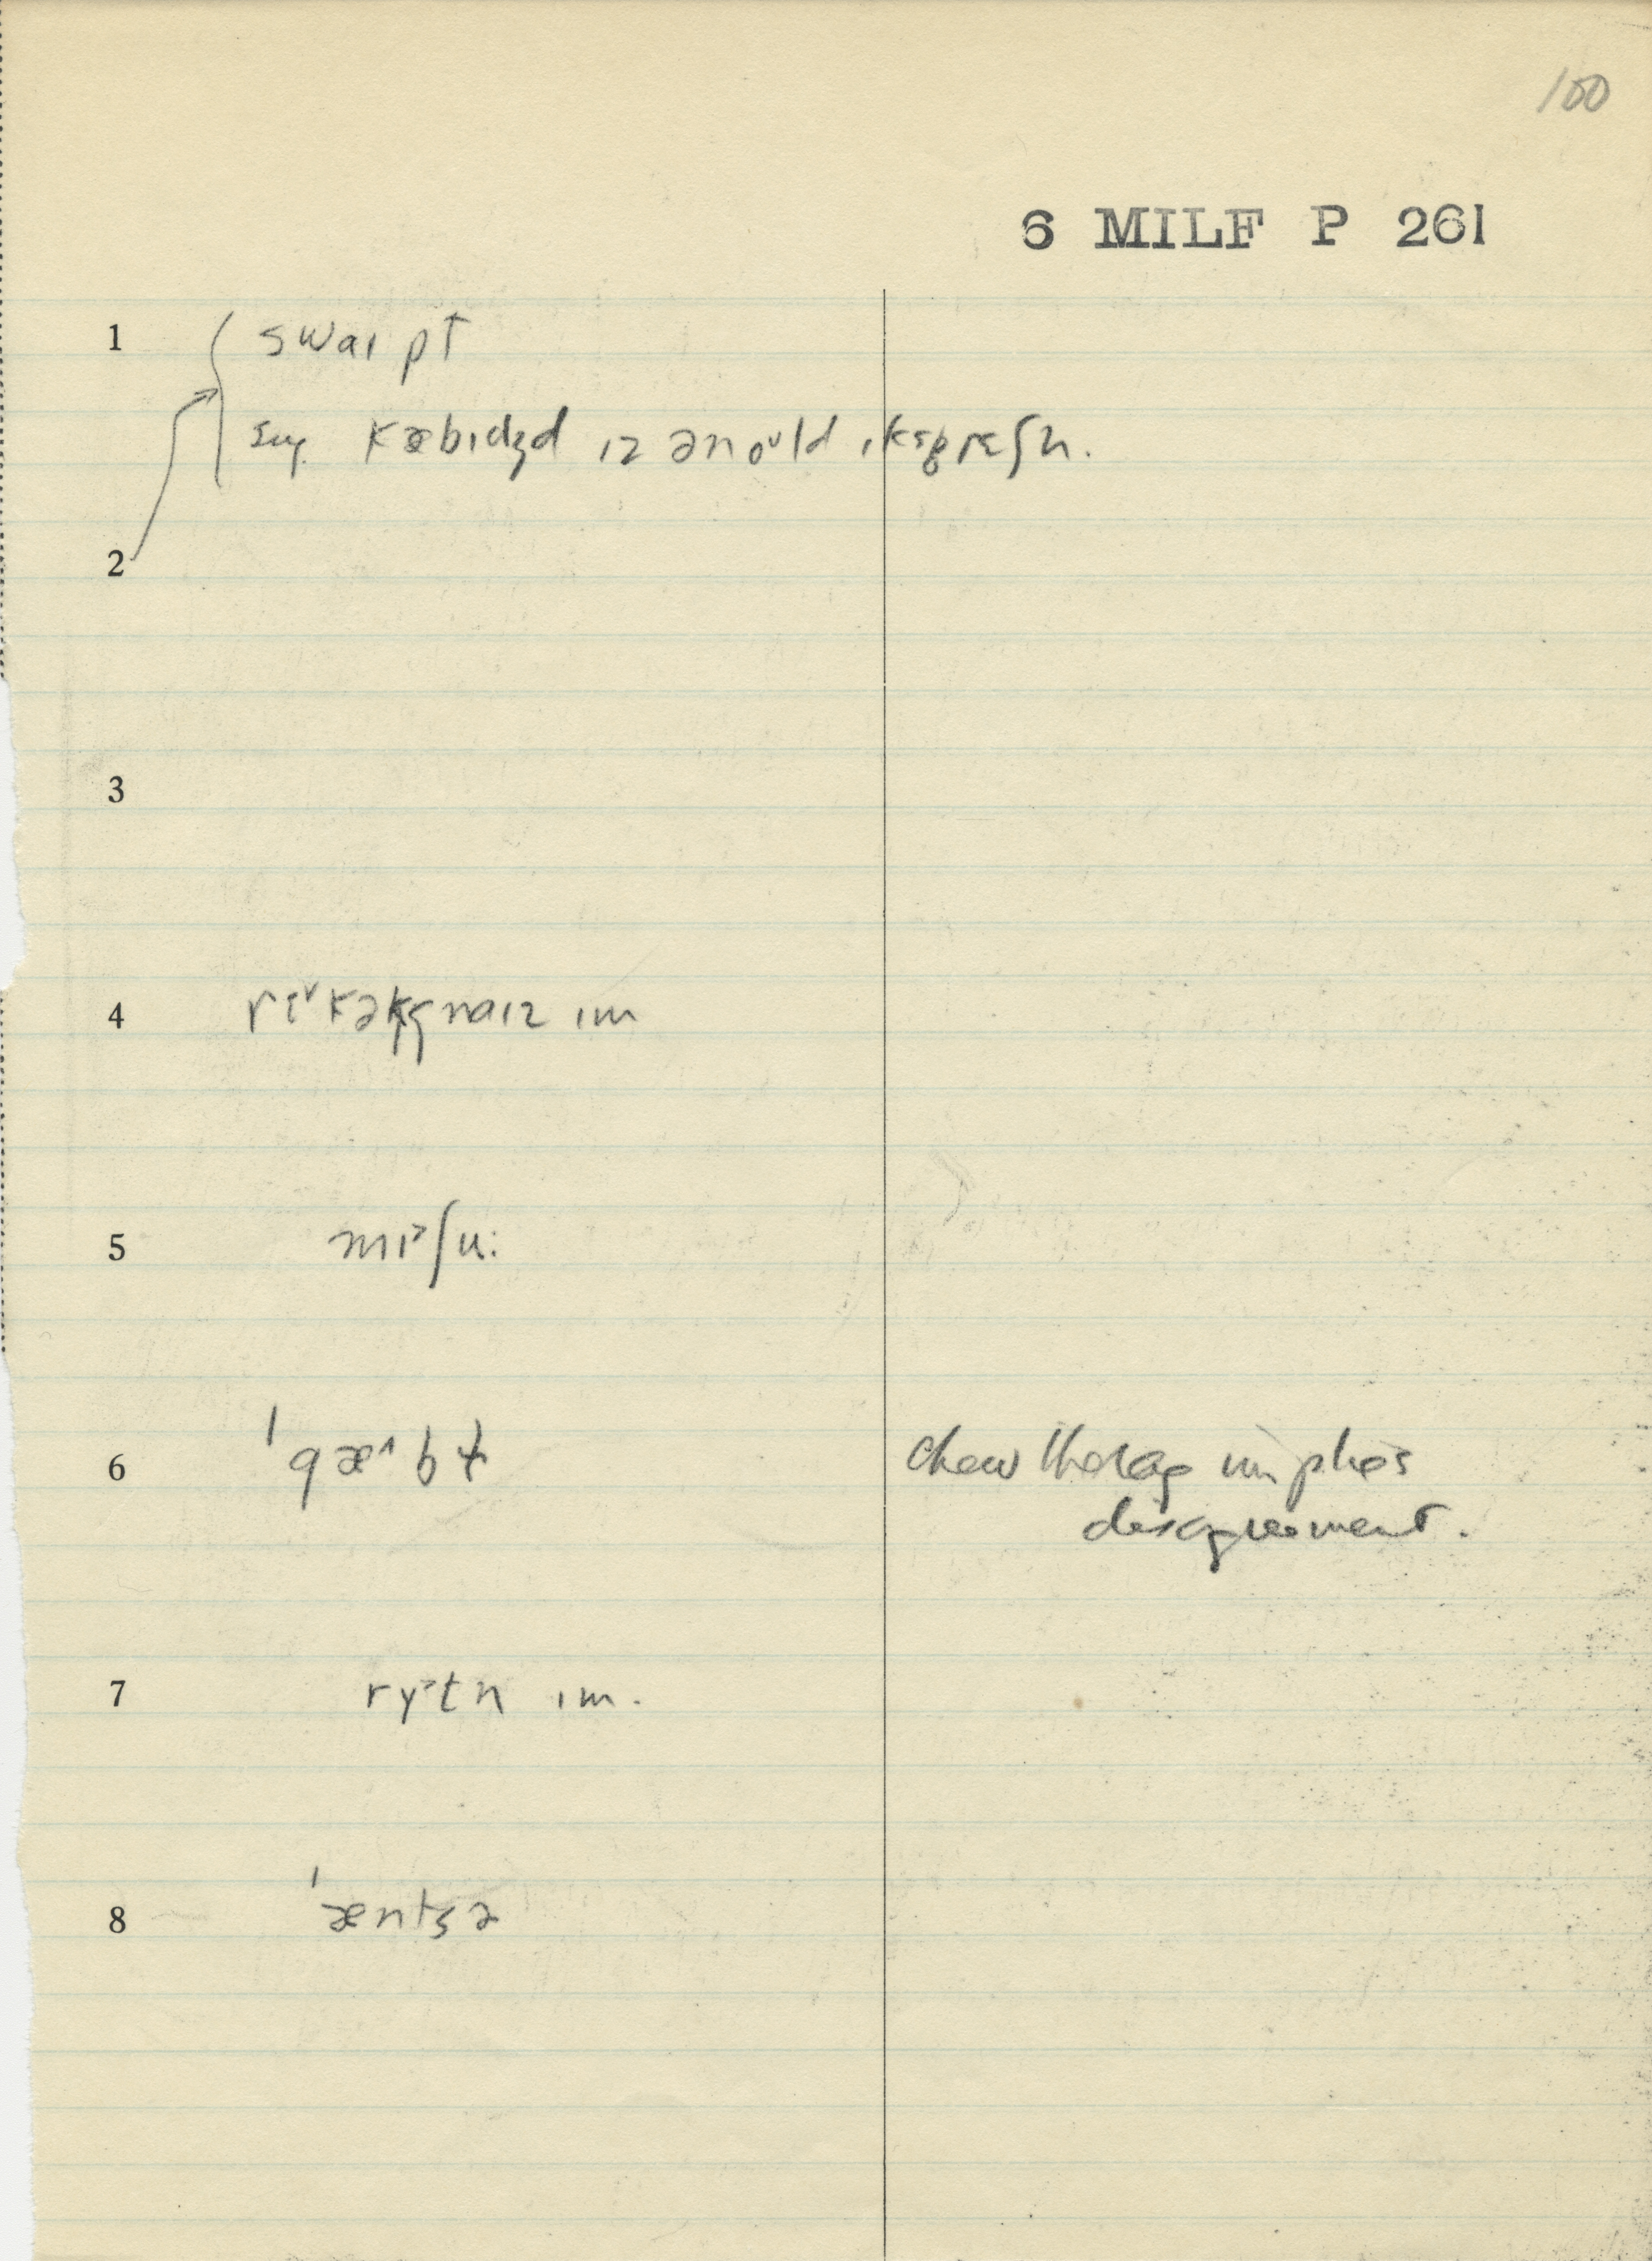 100
6 MILF P 261
1 swaıpt
sug. kæbıdʒd ız ən oᵘld ıkspreʃn.
2
3
4 rɛᵛkəgnaız ım
5 mıᵊʃu:
6 ˈgæ^bɫ
chew the rag implies
disagreement.
7 ryᵊtn ım.
8 ˈæntsə